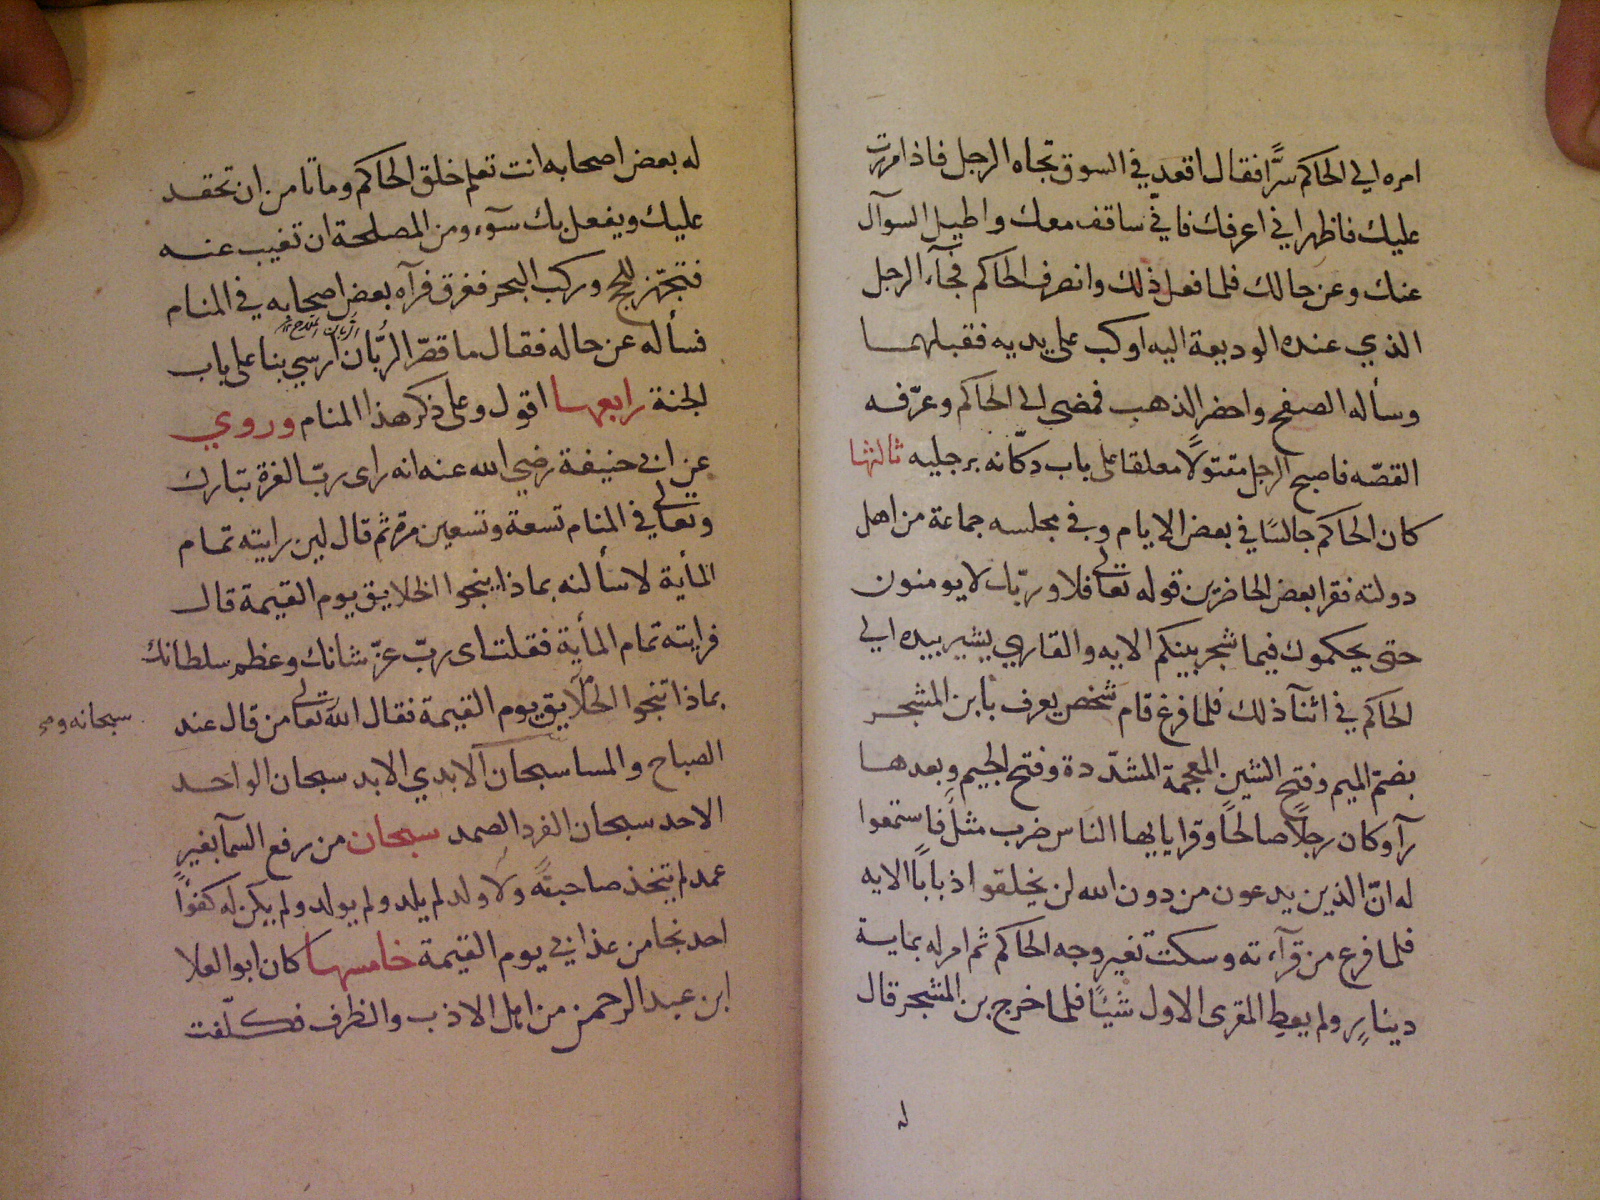 امره الي الحاكم سرًّا فقال اقعد في السوق تجاه الرجل فاذا مررت
عليك فاظهر اني اعرفك فاني ساقف معك واطيل السوآل
عنك وعن حالك فلما فعل ذلك وانصرف الحاكم فجآء الرجل
الذي عنده الوديعة اليه اوكب على يديه فقبلهما
وسأله الصفح واحضر الذهب فمضى الى الحاكم وعرّفه
القصّه فاصبح الرجل مقتولًا معلقا على باب دكّانه برجليه ثالثها
كان الحاكم جالسًا في بعض الايام وفي مجلسه جماعة من اهل
دولته فقرا بعض الحاضرين قوله تعالى فلا وربّك لا يومنون
حتى يحكموك فيما شجر بينكم الايه والقاري يشير بيده الي
الحاكم في اثنآ ذلك فلما فرغ قام شخص يعرف بابن المشجر
بضم الميم وفتح الشين المعجمة المشدّدة وفتح الجيم وبعدها
رآ وكان رجلًا صالحًا وقرا يايها الناس ضرب مثل فاستمعوا
له انّ الذين يدعون من دون الله لن يخلقوا ذبابًا الايه
فلما فرع من قرآءته وسكت تغير وجه الحاكم ثم امر له بماية
دينارٍ ولم يعطِ المقرى الاول شيئًا فلما خرج بن المشجر قال
له
له بعض اصحابه انت تعلم خلق الحاكم وماتامن ان تحقد
عليك ويفعل بك سوآء ومن المصلحة ان تغيب عنه
فتجهّز للحج وركب البحر فغرق فرآه بعض اصحابه في المنام
فسأله عن حاله فقال ما قصّر الرُبّان ارسي بنا على باب
الجنة رابعها اقول وعلى ذكر هذا المنام وروي
عن ابي حنيفة رضي الله عنه انه راى ربّ العزة تبارك
وتعالى في المنام تسعة وتسعين مرة ثم قال لين رايته تمام
المأية لاسألنه بماذا ينجوا الخلايق يوم القيمة قال
فرايته تمام المأية فقلت اى ربّ عزّ شانك وعظم سلطانك
بماذا تنجوا الخلايق يوم القيمة فقال الله تعالى من قال عند
سبحانه و
الصباح والمسا سبحان الابدي الابد سبحان الواحد
الاحد سبحان الفرد الصمد سبحان من رفع السمآ بغير
عمد لم يتخذ صاحبةً ولا ولد لم يلد ولم يولد ولم يكن له كفوًا
احد نجا من عذابي يوم القيمة خامسها كان ابو العلا
ابن عبد الرحمن من اهل الادب والظرف فكلّفت